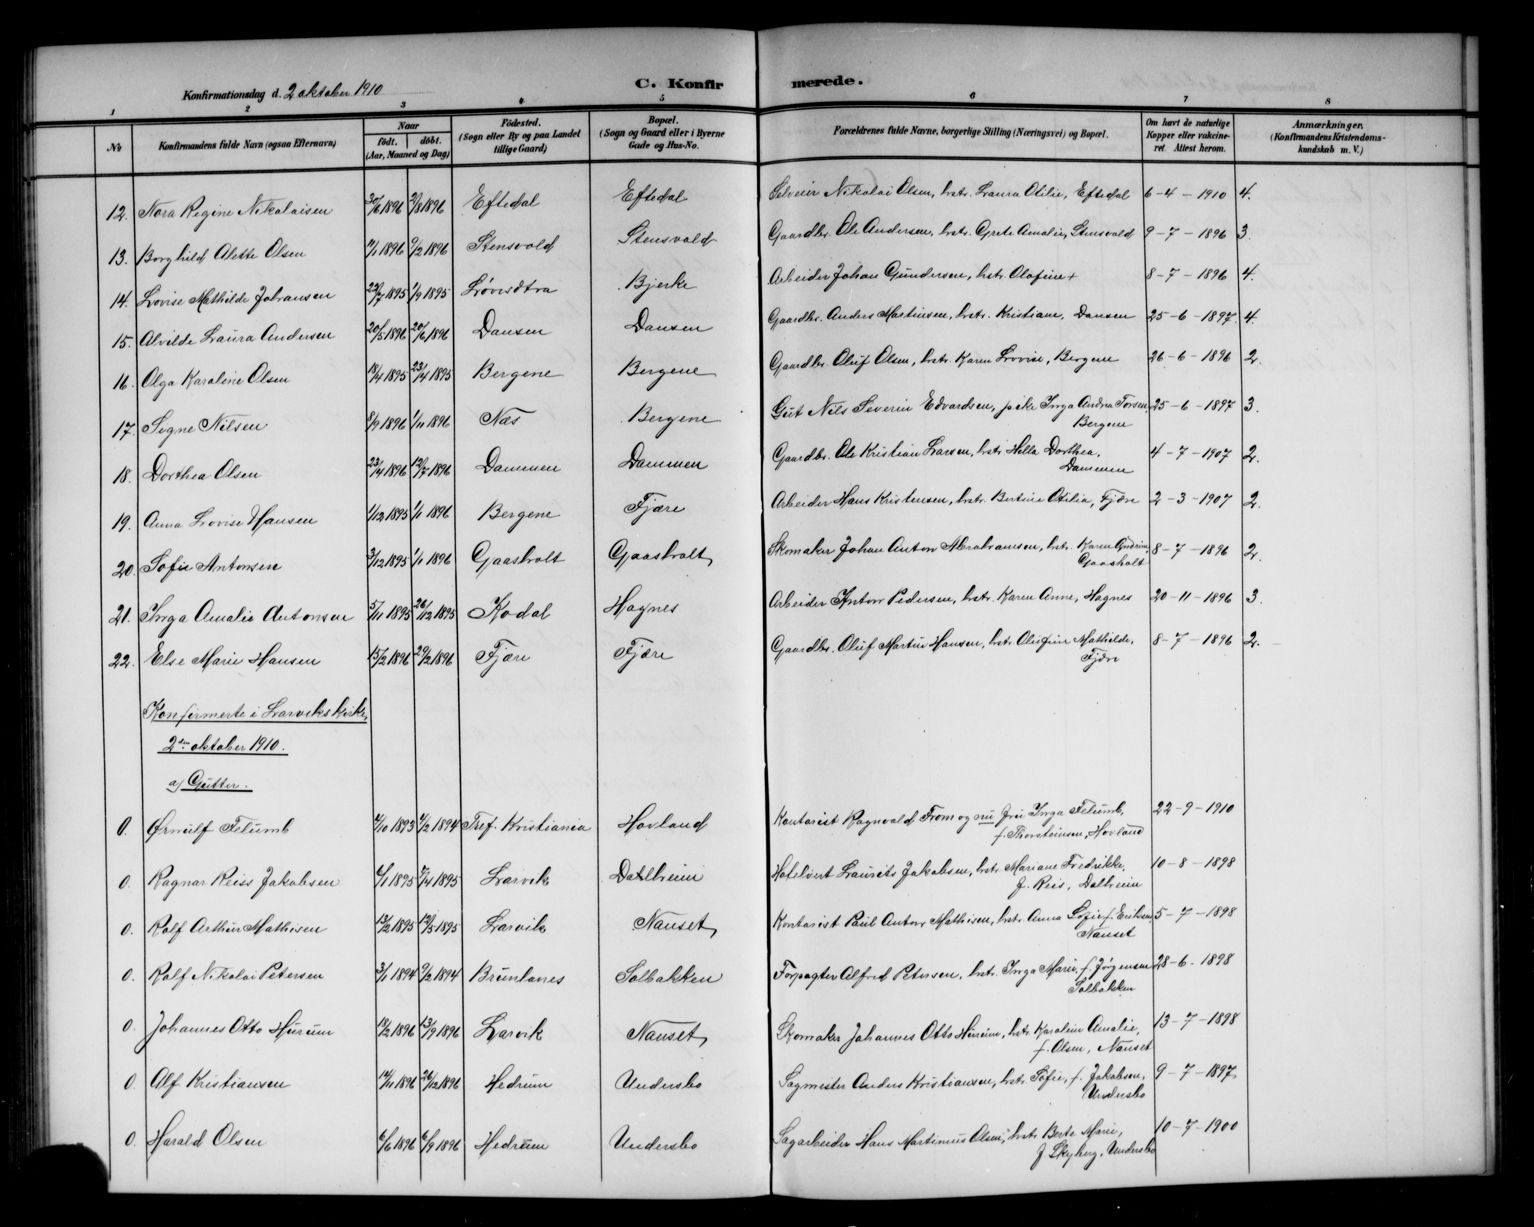 Konfirmationsdag d. 2 oktober 1910
C. Konfirmerede.
1 2 3 4 5 6 7 8
No
Konfirmandens fulde Navn (ogsaa Efternavn)
Naar
født. døbt.
(Aar, Maaned og Dag)
Fødested.
(Sogn eller By og paa Landet
tillige Gaard)
Bopæl.
(Sogn og Gaard eller i Byerne
Gade og Hus-No.
Forældrenes fulde Navne, borgerlige Stilling (Næringsvei) og Bopæl.
Om havt de naturlige
Kopper eller vakcine-
ret. Attest herom.
Anmærkninger.
(Konfirmandens Kristendoms-
kundskab m. V.)
12. Nora Regine Nikolaisen 30/6 1896 2/8 1896 Eftedal Eftedal Selveier Nikolai Olsen, hstr. Laura Otilie, Eftedal 6-4-1910 4.
13. Borghild Alette Olsen 11/11 1896 9/12 1896 Stensvold Stensvold Gaardbr. Ole Andersen, hstr. Grete Amalie, Stensvold 9-7-1896 3.
14. Lovise Mathilde Johansen 22/7 1895 1/9 1895 Løvesdtra Bjerke Arbeider Johan Gundersen, hstr. Olafine + 8-7-1896 4.
15. Alvilde Laura Andersen 20/5 1896 20/6 1896 Dansen Dansen Gaardbr. Anders Martinsen, hstr. Kristiane, Dansen 25-6-1897. 4.
16. Olga Karoline Olsen 18/4 1895 23/4 1895 Bergene Bergene Gaardbr. Oluf Olsen, hstr. Karen Lovise, Bergene 26-6-1896 2.
17. Signe Nilsen 8/9 1896 1/11 1896 Næs Bergene Gut Nils Severin Edvardsen, pike Inga Andrea Torsen,
Bergene 25-6-1897 3.
18. Dorthea Olsen 22/4 1896 12/7 1896 Dammen Dammen Gaardbr. Ole Kristian Larsen, hstr. Hella Dorthea,
Dammen 4-7-1907 2.
19. Anna Lovise Hansen 1/12 1895 1/1 1896 Bergene Fjære Arbeider Hans Kristensen, hstr. Bertine Otilia, Fjære 2-3-1907 2.
20. Sofie Antonsen 3/12 1895 1/1 1896 Gaasholt Gaasholt, Skomaker Johan Anton Abrahamsen, hstr. Karen Andrine,
Gaasholt 8-7-1896 2.
21. Inga Amalie Antonsen 5/11 1895 26/12 1895 Kodal Hagnes Arbeider Anton Pedersen, hstr. Karen Anne, Hagnes 20-11-1896 3.
22. Else Marie Hansen 15/2 1896 29/2 1896 Fjære Fjære Gaardbr. Oluf Martin Hansen, hstr. Olefine Mathilde,
Fjære 8-7-1896 2.
Konfirmerte i Larviks kirke,
2den oktober 1910.
a) Gutter.
0. Ørnulf Felumb 4/10 1893 4/2 1894 Tref. Kristiania Hovland Kontorist Ragnvald From og nu fru Inga Felumb,
f. Thorsteinsen, Hovland 22-9-1910
0. Ragnar Riis Jakobsen 6/1 1895 7/4 1895 Larvik Dalheim Hotelvert Laurits Jakobsen, hstr. Mariane Fredrikke,
f. Riis, Dalheim 10-8-1898
0. Rolf Arthur Mathisen 13/2 1895 12/5 1895 Larvik Nanset, Kontorist Paul Anton Mathisen, hstr. Anna Sofie f. Eriksen
Nanset 5-7-1898
0. Rolf Nikolai Petersen 3/1 1894 9/2 1894 Brunlanes Solbakken Forpagter Alfred Petersen, hstr. Inga Marie, f. Jørgensen
Solbakken 28-6-1898
0. Johannes Otto Hurum 18/2 1896 13/9 1896 Larvik Nanset, Skomaker Johannes Otto Hurum, hstr. Karoline Amalie,
f. Olsen, Nanset 13-7-1898
0. Alf Kristiansen 14/11 1896 26/12 1896 Hedrum Undersbo Sagmester Anders Kristiansen, hstr. Sofie, f. Jakobsen,
Undersbo 9-7-1897
0. Harald Olsen 6/6 1896 6/9 1896 Hedrum Undersbo Sagarbeider Hans Martinius Olsen, hstr. Berte Marie,
f. Skyberg, Undersbo 10-7-1900